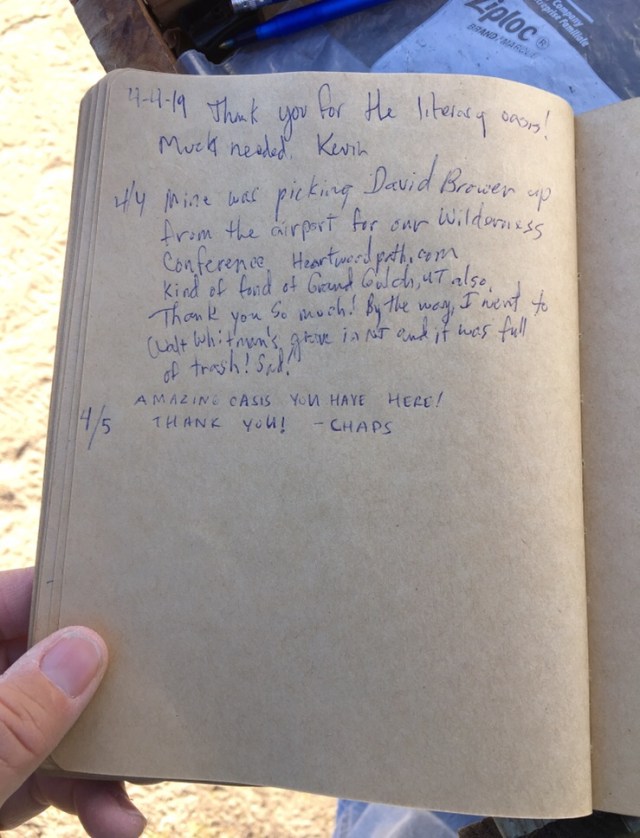 Ziploc®
BRAND/MARQUE
Company
4-4-19 Thank you for the literary oasis!
Much needed. Kevin
4/4 Mine was picking David Brower up
from the airport for our Wilderness
Conference Heartwoodpath.com
Kind of fond of Grand Gulch, UT also.
Thank you so much! By the way, I went to
Walt Whitman's grave in NJ and it was full
of trash! Sad!
AMAZING OASIS YOU HAVE HERE!
4/5 THANK YOU! -CHAPS